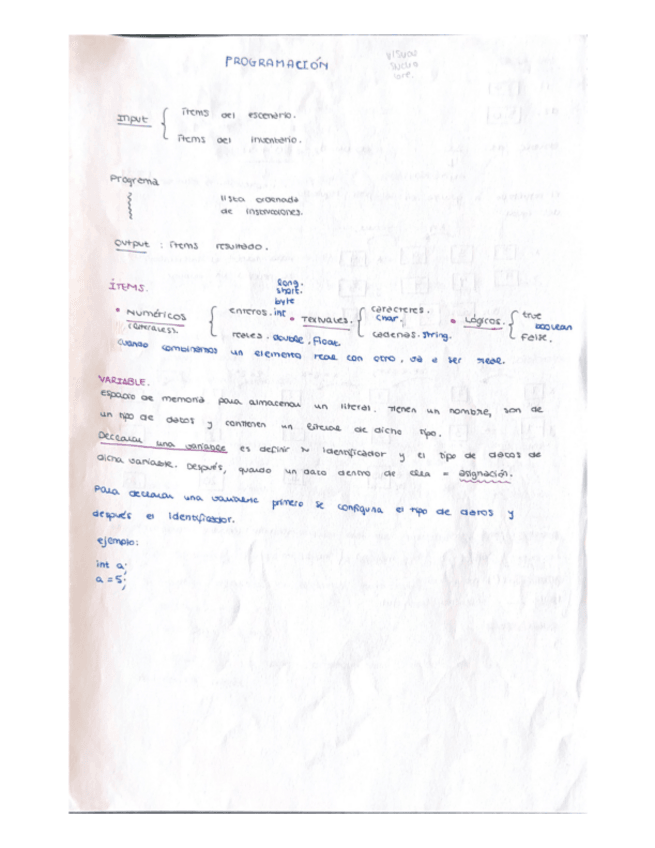 PROGRAMACIÓN
Input { ítems del escenario.
ítems del inventario.
Programa
lista ordenada
de instrucciones.
Output : ítems resultado.
ÍTEMS.
long.
short.
byte
• Numéricos { enteros. int
(literales).
reales. double. float
• Textuales. { carácteres.
char.
cadenas. string.
• Lógicos. { true
boolean
False.
cuando combinamos un elemento real con otro, va a ser real.
VARIABLE.
Espacio de memoria para almacenar un literal. Tienen un nombre, son de
un tipo de datos y contienen un literal de dicho tipo.
Declarar una variable es definir tu identificador y el tipo de datos de
dicha variable. Después, guardo un dato dentro de ella = asignación.
Para declarar una variable primero se configura el tipo de datos y
después el identificador.
ejemplo:
int a;
a = 5;